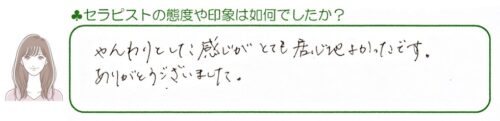 ♣セラピストの態度や印象は如何でしたか？
やんわりとした感じがとても居心地よかったです。
ありがとうございました。